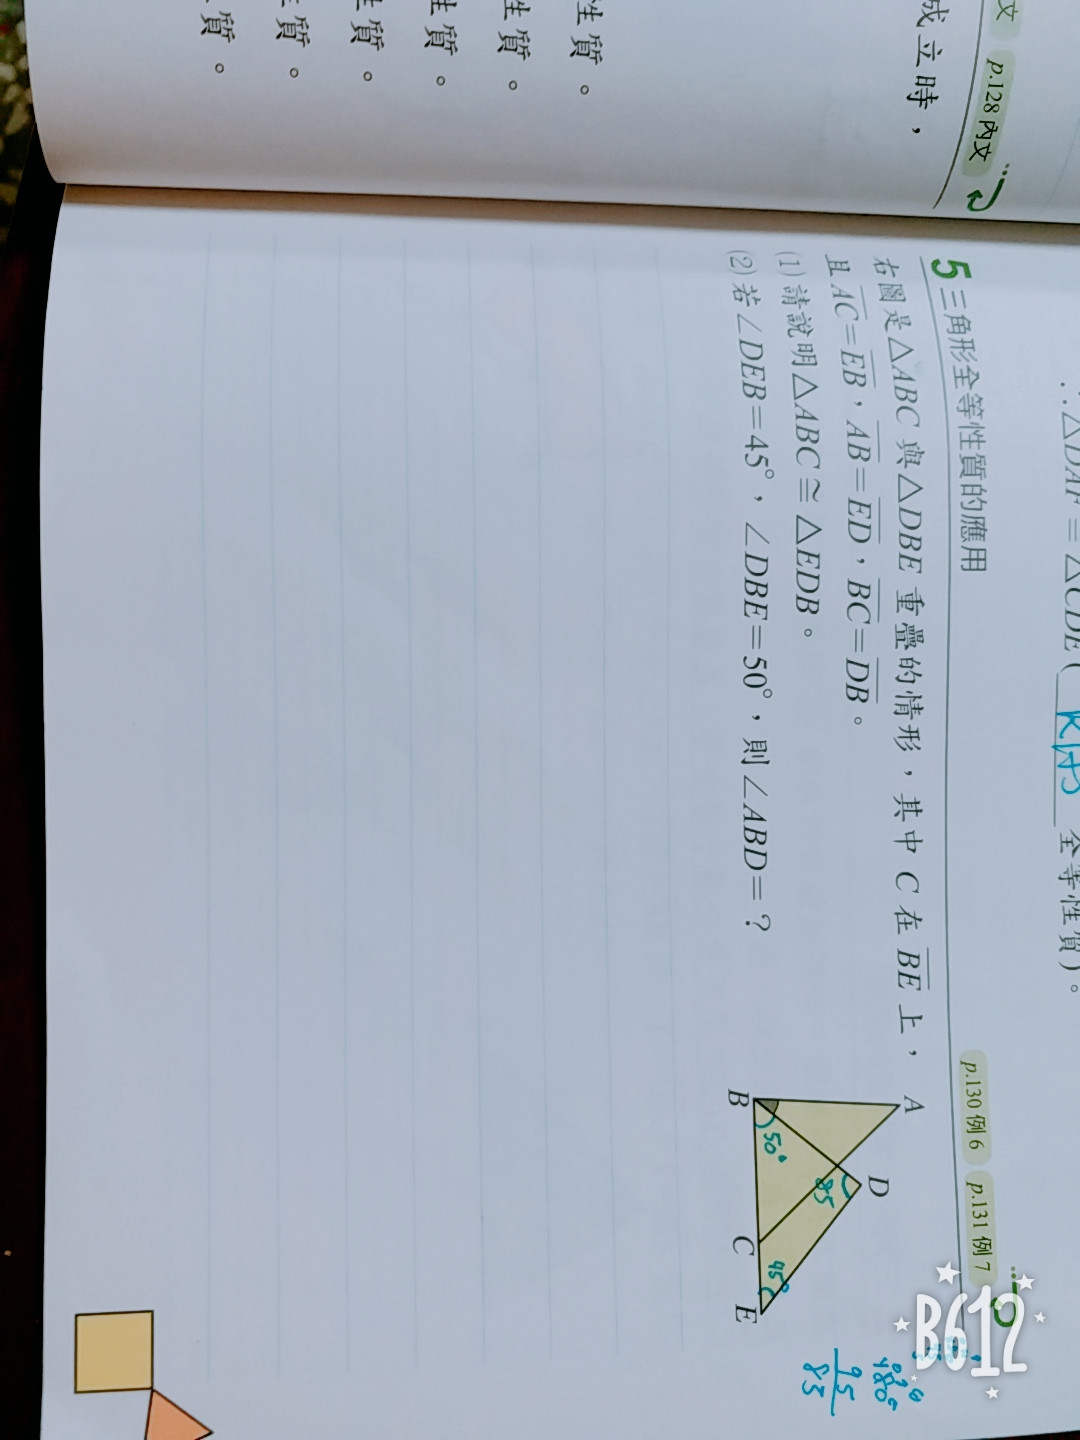 文 p.128 內文
成立時，
性質。
生質。
性質。
性質。
質。
質。
∴△DAF≅△CDE( 全等性質)。
5 三角形全等性質的應用 p.130 例6 p.131 例7
右圖是△ABC 與△DBE 重疊的情形，其中 C 在 BE 上，
且 AC=EB，AB=ED，BC=DB。
(1) 請說明△ABC≅△EDB。
(2) 若∠DEB=45°，∠DBE=50°，則∠ABD=？
A
D
85
50°
45°
B
C
E
180°
95
85
B612